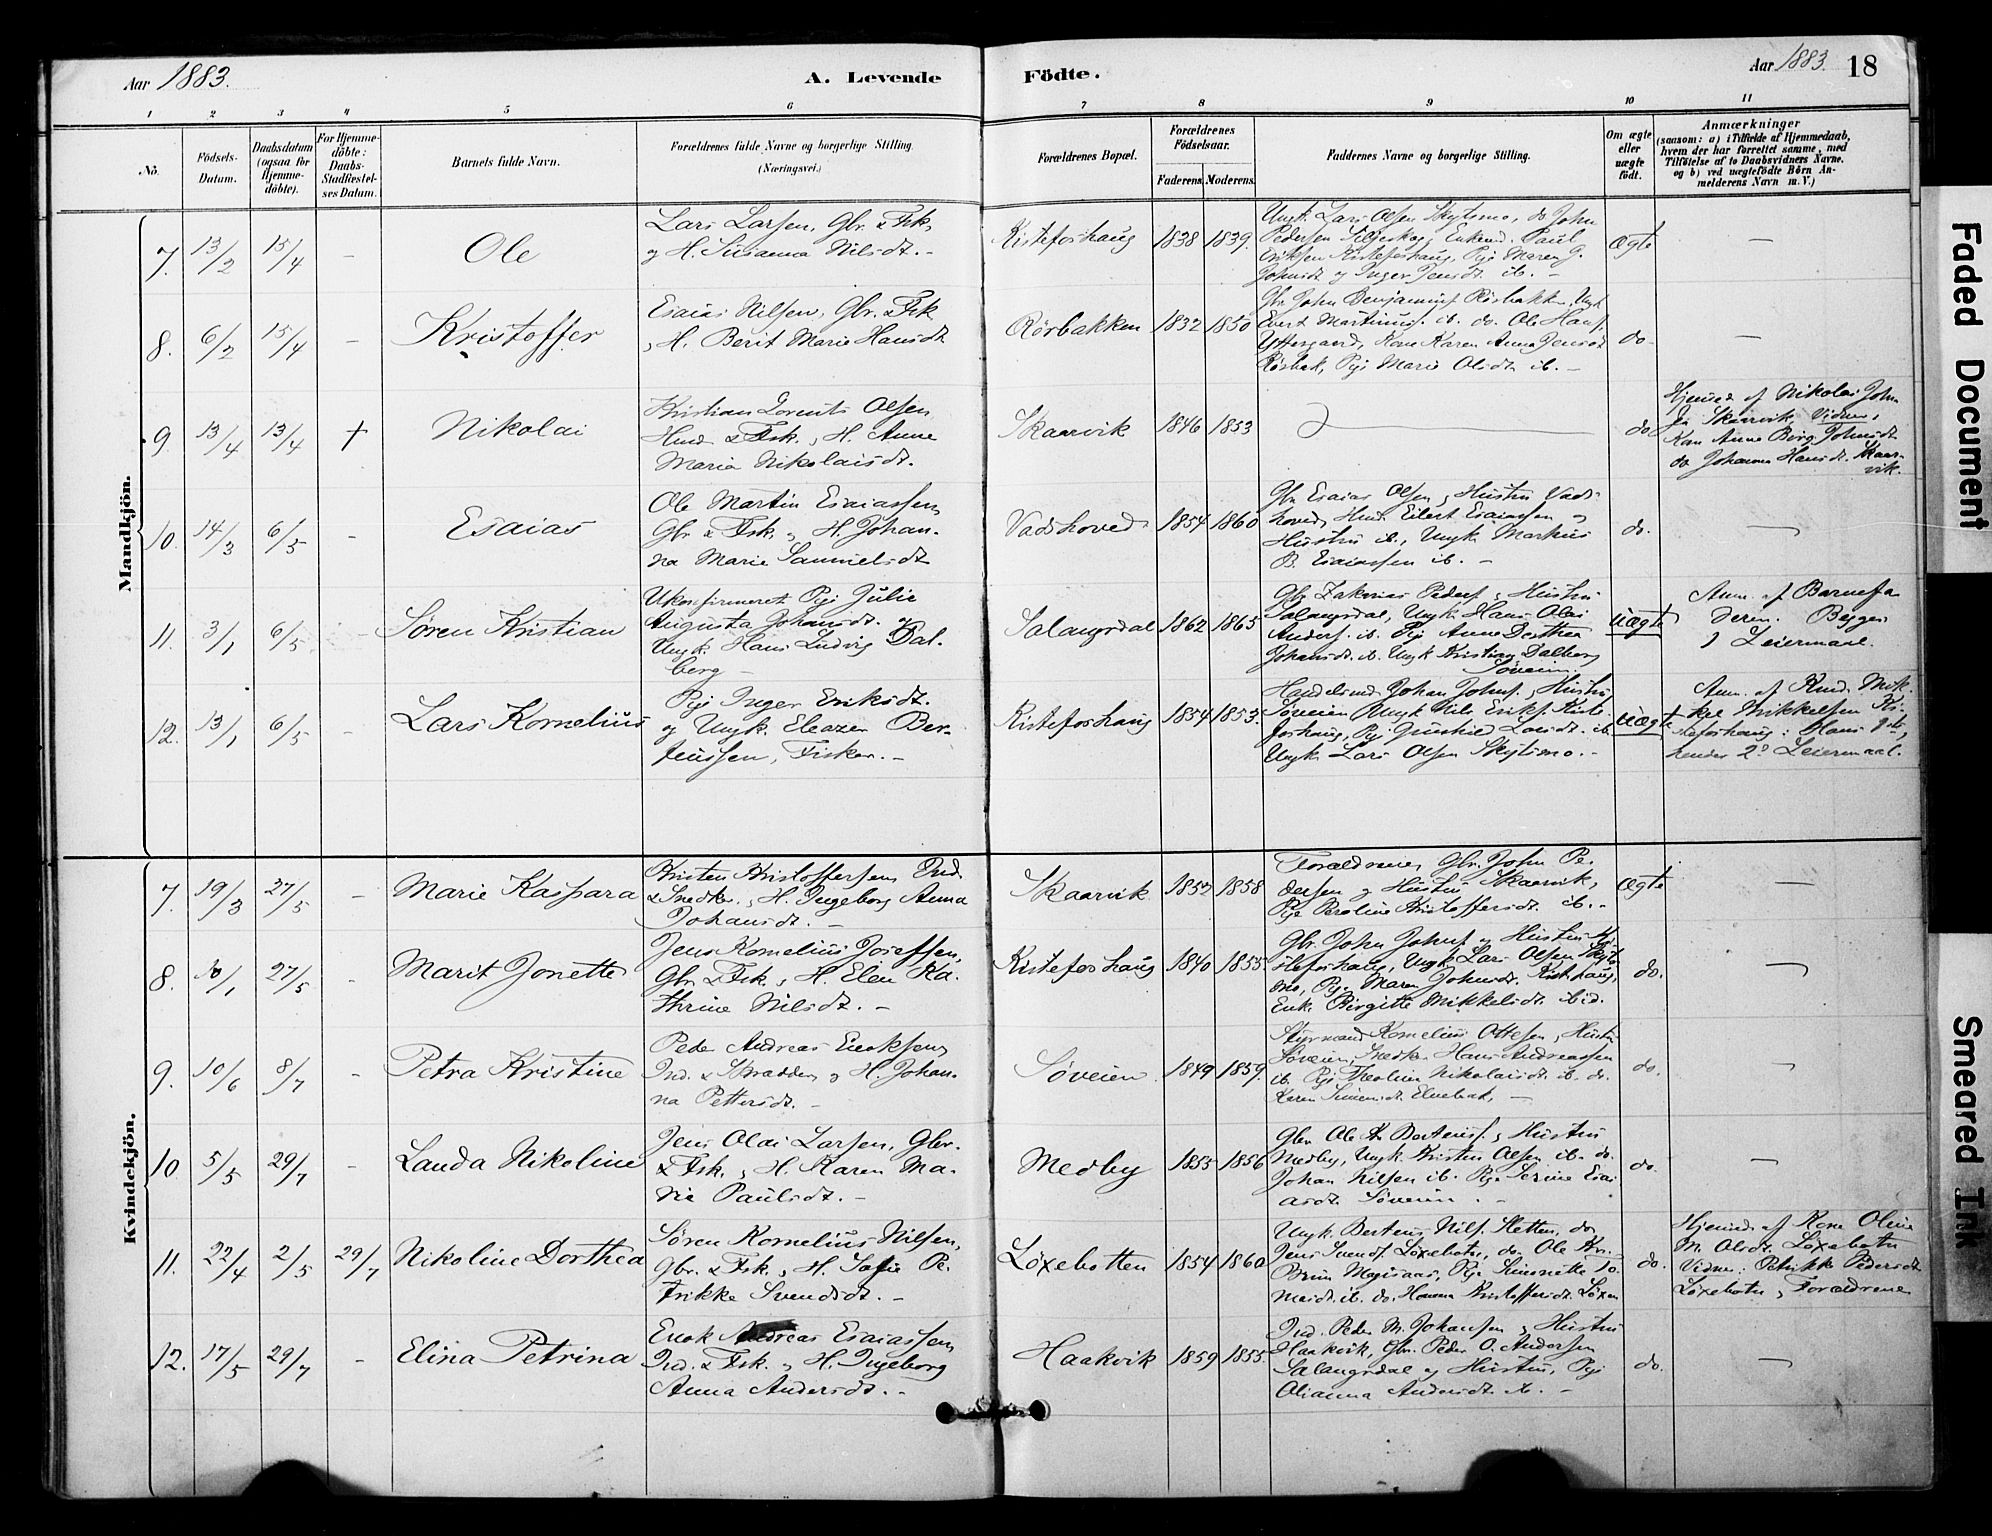 Aar 1883.
A. Levende
Födte.
Aar 1883.
18
1 2 3 4 5 6 7 8 9 10 11
No.
Födsels-
Datum.
Daabsdatum
(ogsaa for
Hjemme-
döbte).
For Hjemme-
döbte:
Daabs-
Stadfæstel-
ses Datum.
Barnets fulde Navn.
Forældrenes fulde Navne og borgerlige Stilling.
(Næringsvei.)
Forældrenes Bopæl.
Forældrenes
Födselsaar.
Faderens.
Moderens.
Faddernes Navne og borgerlige Stilling.
Om ægte
eller
uægte
födt.
Anmærkninger
(saasom: a) i Tilfælde af Hjemmedaab,
hvem der har forrettet samme, med
Tilföielse af to Daabsvidners Navne.
og b) ved uægtefödte Börn An-
melderens Navn m. V.)
Mandkjön.
7. 13/2 15/4 - Ole
Lars Larsen, Gbr. & Fsk.
og H. Susanna Nilsdt. -
Kisteforhaug 1838 1839.
Ungk. Lars Olsen Skytsmo, do John
Pedersen Enkemd. Paul
Eriksen Kisteforhaug, Pige Maren J.
Johnsdt og Inger Jensdt ib. -
Ægte -
8. 6/2 15/4 - Kristoffer
Esaias Nilsen, Gbr. & Fsk
, H. Berit Marie Hansdt
Rörbakken 1832 1850
Gbr. John Benjamins. Rörbakken, Ungk
Evert Martinus. ib. do. Ole Hans.
Yttergaard, Kone Karen Anna Jensdt
Rörbak, Pige Marie Olsdt ib. -
do- -
9. 13/4 13/4 + Nikolai
Kristian Lorents Olsen
Hmd. & Fsk., H. Anne
Maria Nikolaisdt.
Skaarvik 1846 1853
do
Hjemd. af Nikolai John
Skaarvik. Vidner,
Kone Anne Berg. Johnsdt
do Johanna Hansdt. Skaar-
vik.
10. 14/3 6/5 - Esaias
Ole Martin Esaiassen
Gbr & Fsk. og H. Johan-
na Marie Samuelsdt
Vadshoved 1854 1860
Gbr Esaias Olsen, Hustru Vads-
hoved, Hmd. Eilert Esaiassen og
Hustru ib., Ungk. Markus
B. Esaiassen ib. -
do. -
11. 3/1 6/5 - Sören Kristian
Ukonfirmeret Pige Julie
Augusta Johansdt. og
Ungk. Hans Ludvig Dal-
berg -
Salangsdal 1862 1865
Gbr. Zakarias Peders, Hustru
Salangsdal, Ungk Hans Olai
Anders. ib. Pige Anne Dorthea
Johansdt. ib. Ungk Kristian Dalberg
Söveien.
Uægte
Anm. af Barnefa
deren. Begges
1 Leiermaal.
12. 13/1 6/5 - Lars Kornelius
Pige Inger Eriksdt.
og Ungk. Eleazer Ber-
Fisker. -
Kisteforhaug 1854 1853.
Handelsmd Johan Johns., Hustru
Söveien Ungk Nils Eriks. Kiste
forhaug, Pige Gunhild Larsdt. ib.
Ungk Lars Olsen Skytsmo. -
Uægte
Anm. af Knud Mik-
kel Mikkelsen Ki-
steforhaug: Hans 1st,
hendes 2d Leiermaal.
Kvindekjön.
7. 19/3 27/5 - Marie Kaspara
Kristen Kristoffersen Ind.
& Snedker, H. Ingeborg Anna
Johansdt. -
Skaarvik 1852 1858
Forældrene, Gbr. John Pe-
dersen og Hustru Skaarvik,
Pige Peroline Kristoffersdt. ib. -
Ægte -
8. 10/1 27/5 - Marit Jonette
Jens Kornelius Joseffsen,
Gbr & Fsk., H. Elen Ka-
thrine Nilsdt. -
Kisteforhaug 1840 1855.
Gbr. John Johns. og Hustru Ki-
steforhaug, Ungk Lars Olsen Skyts-
mo, Pige Maren Johnsdt. Kistehaug,
Enke Birgitte Mikkelsdt. ibid.
do. -
9. 10/6 8/7 - Petra Kristine
Peder Andreas Enoksen,
Ind. & Skrædder og H. Johan-
na Pettersdt. -
Söveien 1849 1859.
Styrmand Kornelius Ottesen, Hustru
Söveien, Snedker Hans Andreassen
ib. Pige Nikolaisdt. ib. do.
Karen Simensdt. Elvebak, -
do. -
10 5/5 29/7 - Lauda Nikoline
Jens Olai Larsen, Gbr.
& Fsk., H. Karen Ma-
rie Paulsdt. -
Medby 1853 1856
Gbr. Ole Kr. Bertens. , Hustru
Medby, Ungk. Kristen Olsen ib. do.
Johan Nilsen ib. Pige Serine Esai
asdt. Söveien. -
do. -
11. 22/4 2/5 29/7 Nikoline Dorthea
Sören Kornelius Nilsen,
Gbr. & Fsk., H. Sofie Pe-
trikke Svendsdt. -
Löxebotten 1854 1860
Ungk. Bertens Nils. Sletten, do
Jens Svends. Löxebotn, do. Ole Kr.
Brun Pige Simonette To-
ib. do. Hanna Kristoffersdt. Löxen
do.
Hjemd. af Kone Oline
M. Olsdt. Löxebotn
Vidner: Petrikke Pedersdt
Löxebotn, Forældrene
12. 17/5 29/7 - Elina Petrina
Enok Andreas Esaiassen
Ind. & Fsk. og H. Ingeborg
Anna Andersdt. -
Haakvik 1859 1855.
Ind. Peder M. Johansen, Hustru
Haakvik, Gbr. Peder O. Andersen
Salangsdal og Hustru, Pige
Olianna Andersdt. ib. -
do. -
Faded Document
Smeared Ink